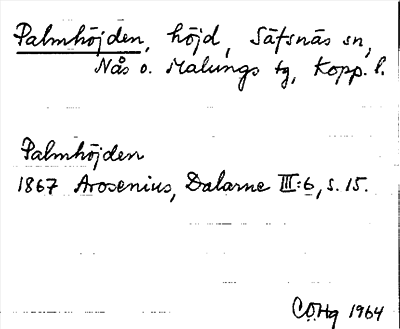 Palmhöjden, höjd, Säfsnäs sn,
Nås o. Malungs tg, Kopp. l.
Palmhöjden
1867 Arosenius, Dalarne III:6, s. 15.
C.O.Hg 1964